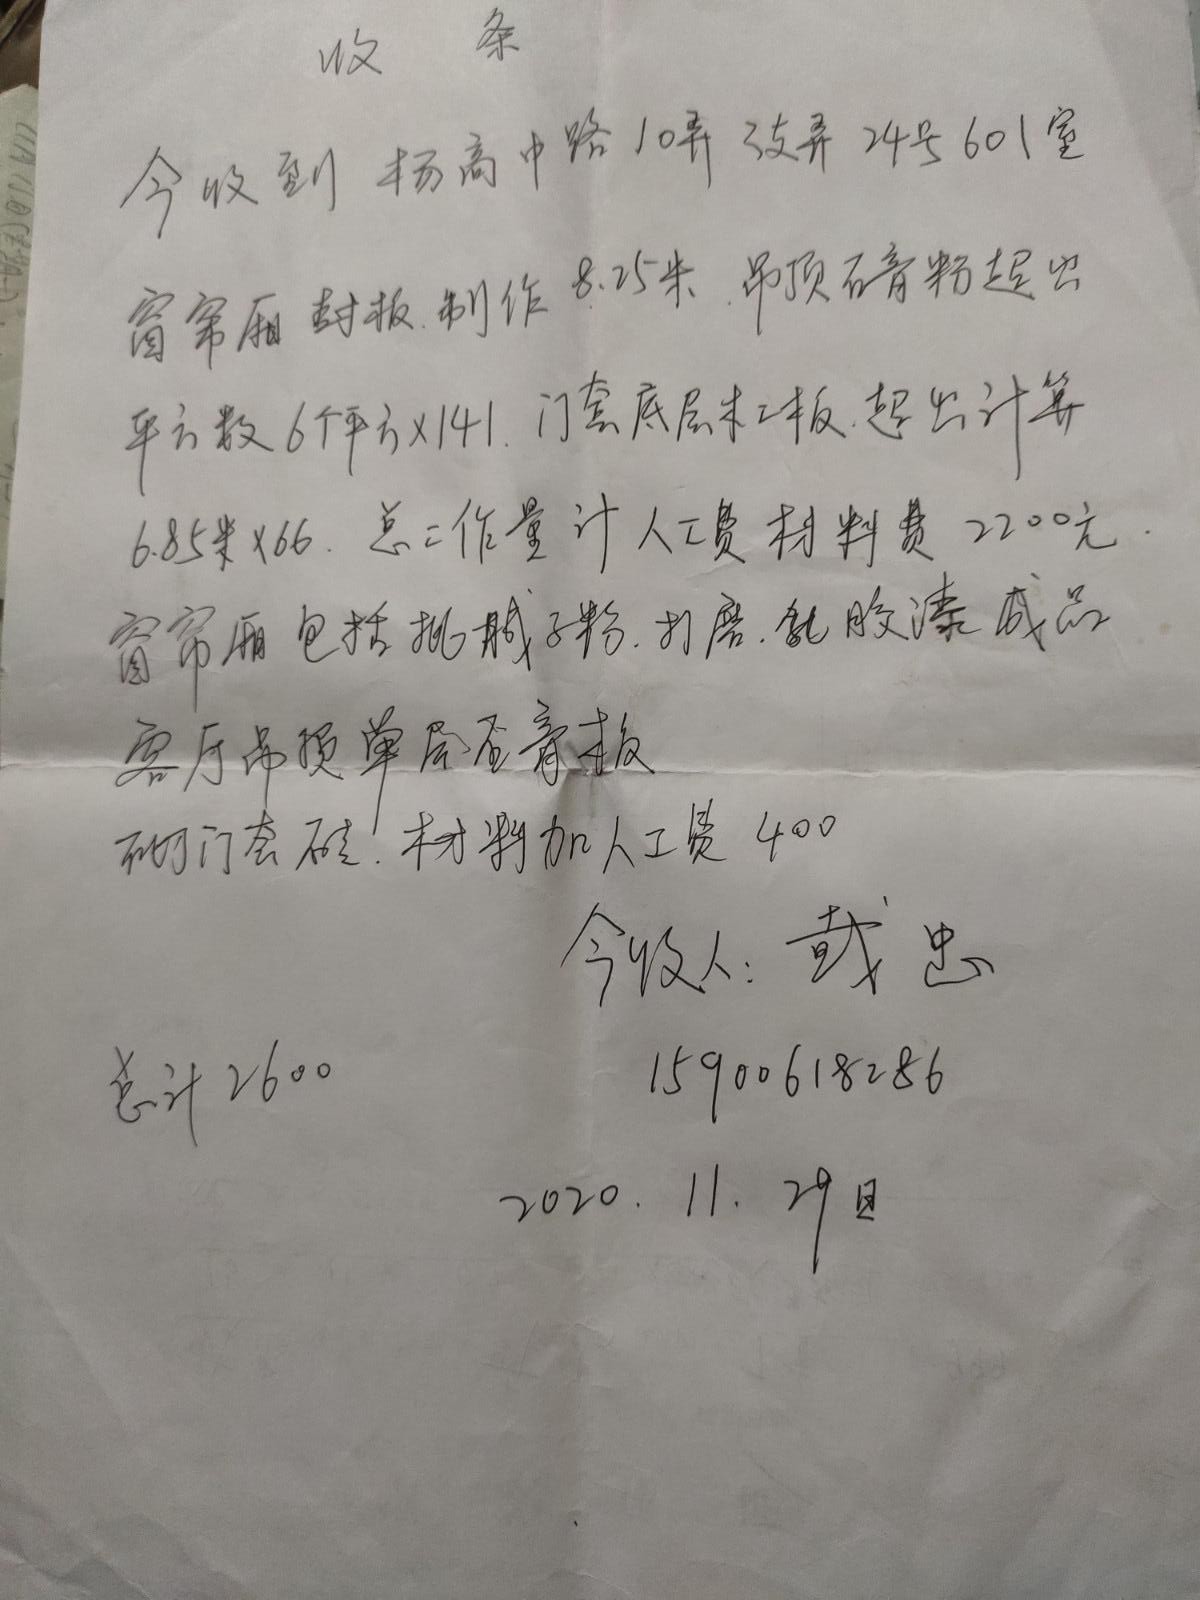 收 条
今收到 杨高中路10弄 支弄24号601室
窗帘厢封板.制作8.25米.吊顶石膏粉超出
平方数6个平方×141.门套底层木工板.超出计算
6.85米×66.总工作量计人工费材料费2200元.
窗帘厢包括批腻子粉.打磨.乳胶漆成品
客厅吊顶单层石膏板
砌门套砖.材料加人工费400
今收人: 戴忠
总计2600 15900618286
2020.11.29日